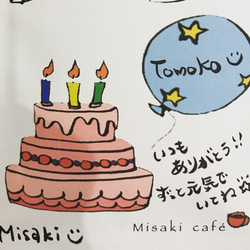 Tomoko
いつも
ありがとう!!
ずっと元気で
いてね
Misaki
Misaki café